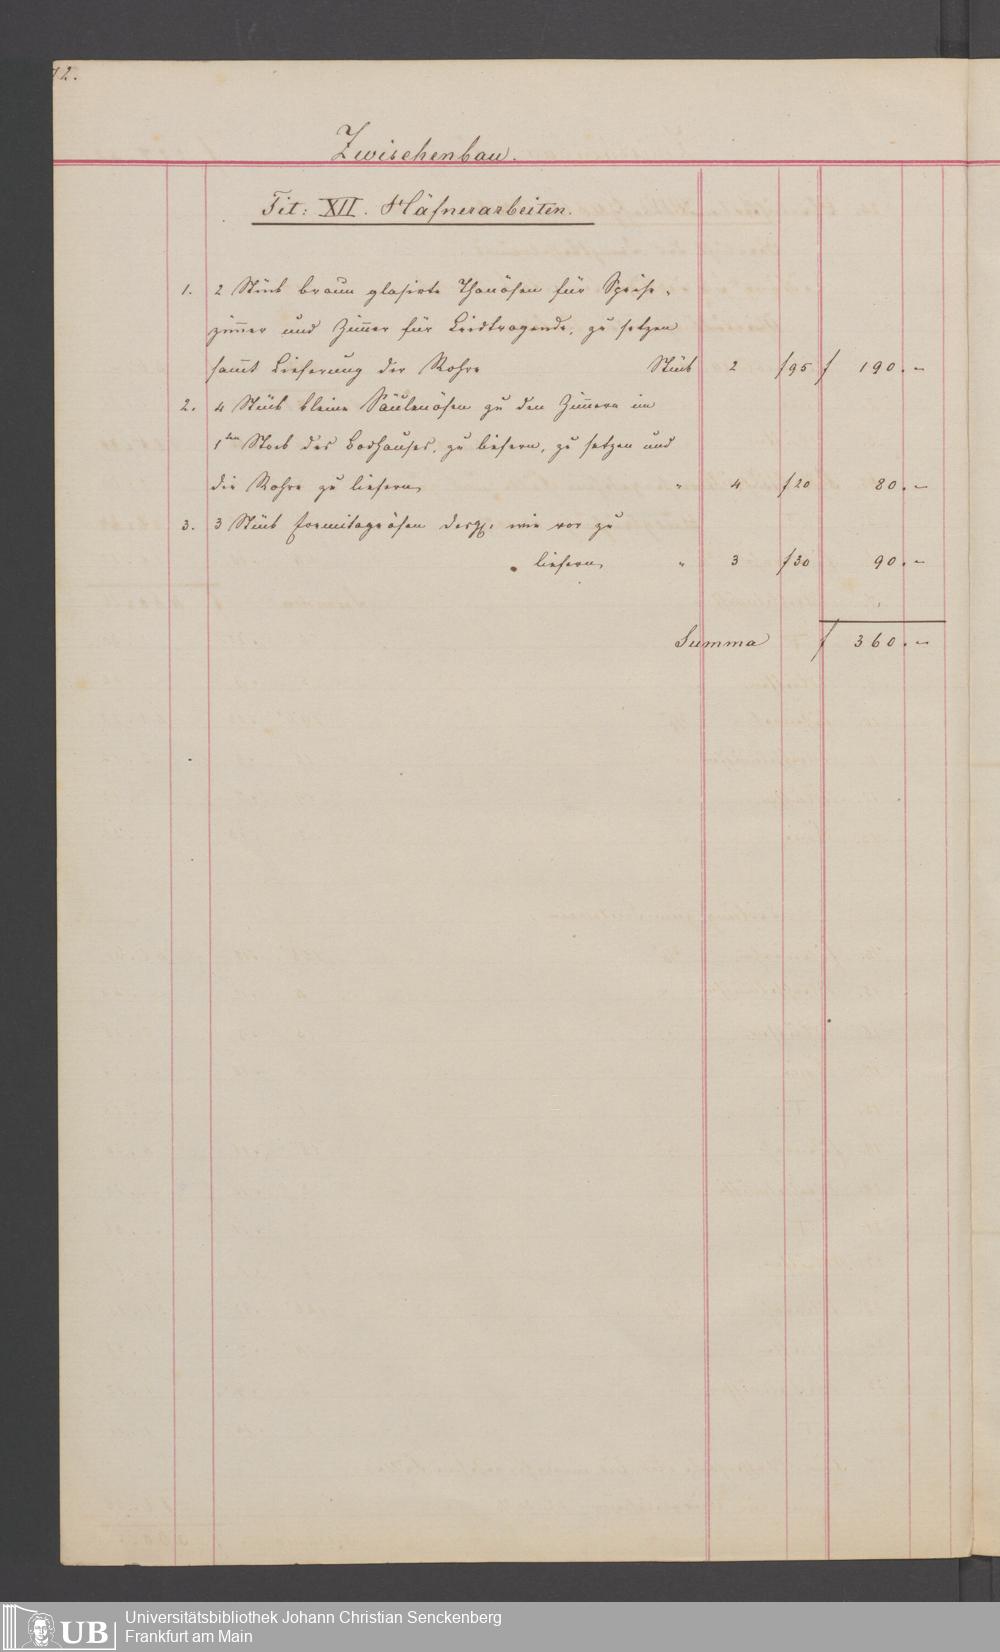 72.
Zwischenbau.
Tit: XII. Häfnerarbeiten.
1. 2 Stück braun glasirte Thonöfen für Speise-
zimmer und Zimmer für Leidtragende, zu setzen
sammt Lieferung der Rohre Stück 2 f 95 f 190.-
2. 4 Stück kleine Säulenöfen zu den Zimmern im
1ten Stock des Badhauses, zu liefern, zu setzen und
die Rohre zu liefern " 4 f 20 80.-
3. 3 Stück desgl. wie vor zu
liefern " 3 f 30 90.-
Summa f 360.-
UB
Universitätsbibliothek Johann Christian Senckenberg
Frankfurt am Main